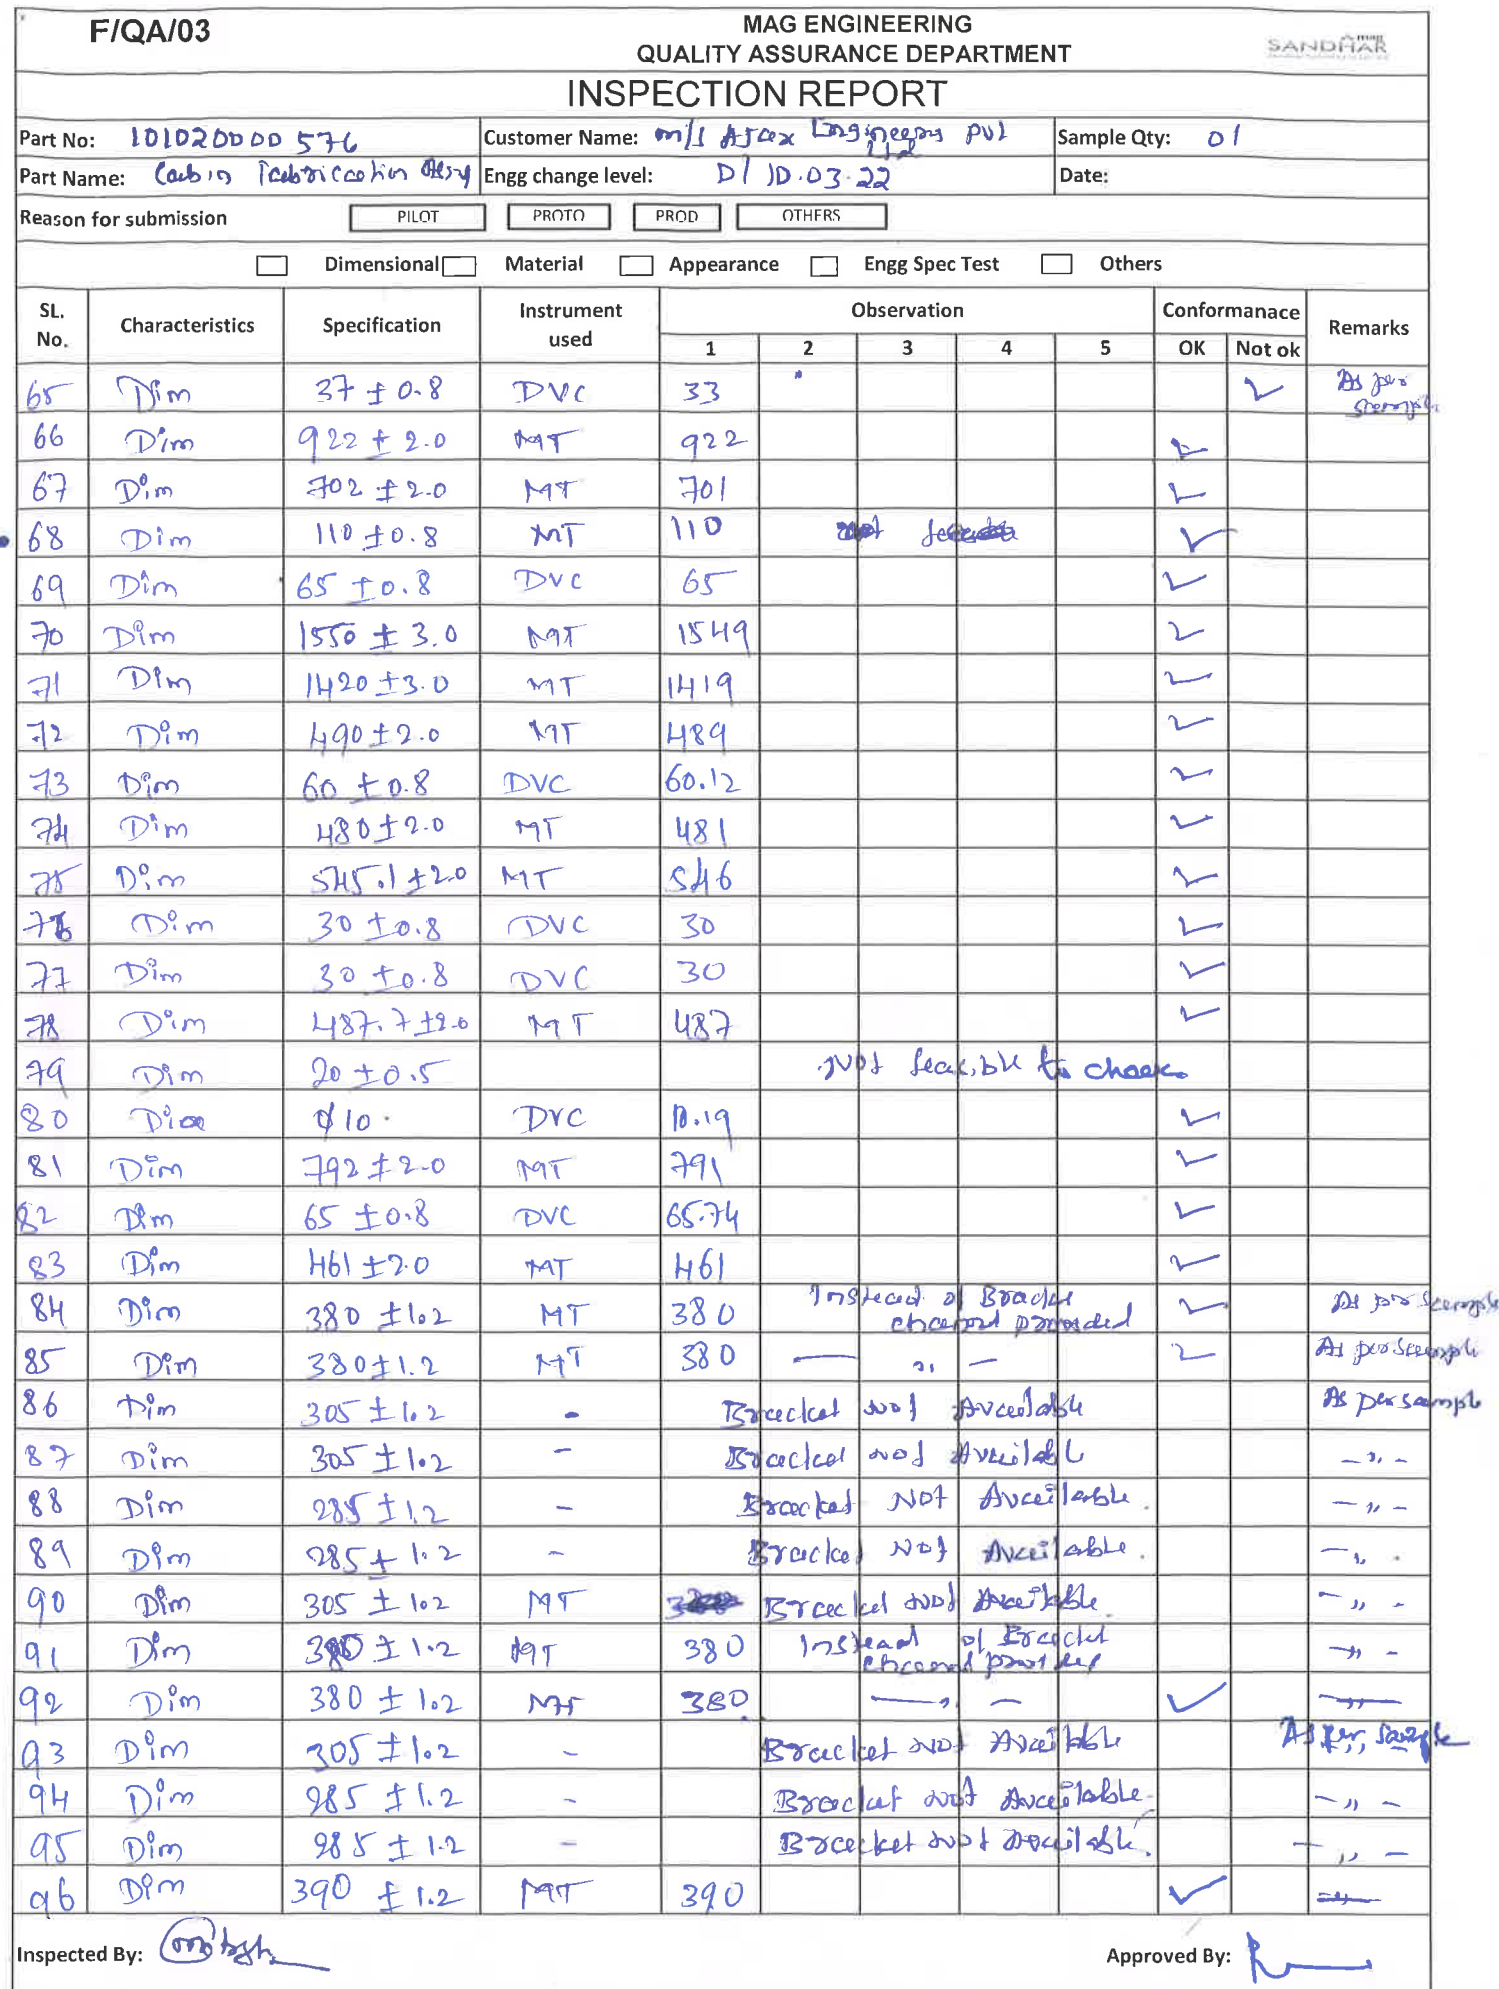 F/QA/03
MAG ENGINEERING
QUALITY ASSURANCE DEPARTMENT
SANDHAR
INSPECTION REPORT
Part No: 101020000576 Customer Name: m/s Ajax Engineering Pvt Ltd Sample Qty: 01
Part Name: Cabin Fabrication Assy Engg change level: D/10.03.22 Date:
Reason for submission PILOT PROTO PROD OTHERS
Dimensional Material Appearance Engg Spec Test Others
SL. No. Characteristics Specification Instrument used Observation Conformanace Remarks
1 2 3 4 5 OK Not ok
65 Dim 37 ± 0.8 DVC 33 ✓ As per sample
66 Dim 922 ± 2.0 MT 922 ✓
67 Dim 702 ± 2.0 MT 701 ✓
68 Dim 110 ± 0.8 MT 110 ✓
69 Dim 65 ± 0.8 DVC 65 ✓
70 Dim 1550 ± 3.0 MT 1549 ✓
71 Dim 1420 ± 3.0 MT 1419 ✓
72 Dim 490 ± 2.0 MT 489 ✓
73 Dim 60 ± 0.8 DVC 60.12 ✓
74 Dim 480 ± 2.0 MT 481 ✓
75 Dim 545.1 ± 2.0 MT 546 ✓
76 Dim 30 ± 0.8 DVC 30 ✓
77 Dim 30 ± 0.8 DVC 30 ✓
78 Dim 487.7 ± 2.0 MT 487 ✓
79 Dim 20 ± 0.5 Not feasible to check
80 Dia ϕ10 DVC 10.19 ✓
81 Dim 792 ± 2.0 MT 791 ✓
82 Dim 65 ± 0.8 DVC 65.74 ✓
83 Dim 461 ± 2.0 MT 461 ✓
84 Dim 380 ± 1.2 MT 380 Instead of Bracket channel provided ✓ As per sample
85 Dim 380 ± 1.2 MT 380 — ,, — ✓ As per sample
86 Dim 305 ± 1.2 - Bracket Not Available As per sample
87 Dim 305 ± 1.2 - Bracket Not Available - ,, -
88 Dim 285 ± 1.2 - Bracket Not Available. - ,, -
89 Dim 285 ± 1.2 - Bracket Not Available. - ,, -
90 Dim 305 ± 1.2 MT Bracket Not Available. - ,, -
91 Dim 380 ± 1.2 MT 380 Instead of Bracket channel provided - ,, -
92 Dim 380 ± 1.2 MT 380 — ,, — ✓ - ,, -
93 Dim 305 ± 1.2 - Bracket Not Available As per sample
94 Dim 285 ± 1.2 - Bracket Not Available. - ,, -
95 Dim 285 ± 1.2 - Bracket Not Available. - ,, -
96 Dim 390 ± 1.2 MT 390 ✓ - ,, -
Inspected By: Approved By: